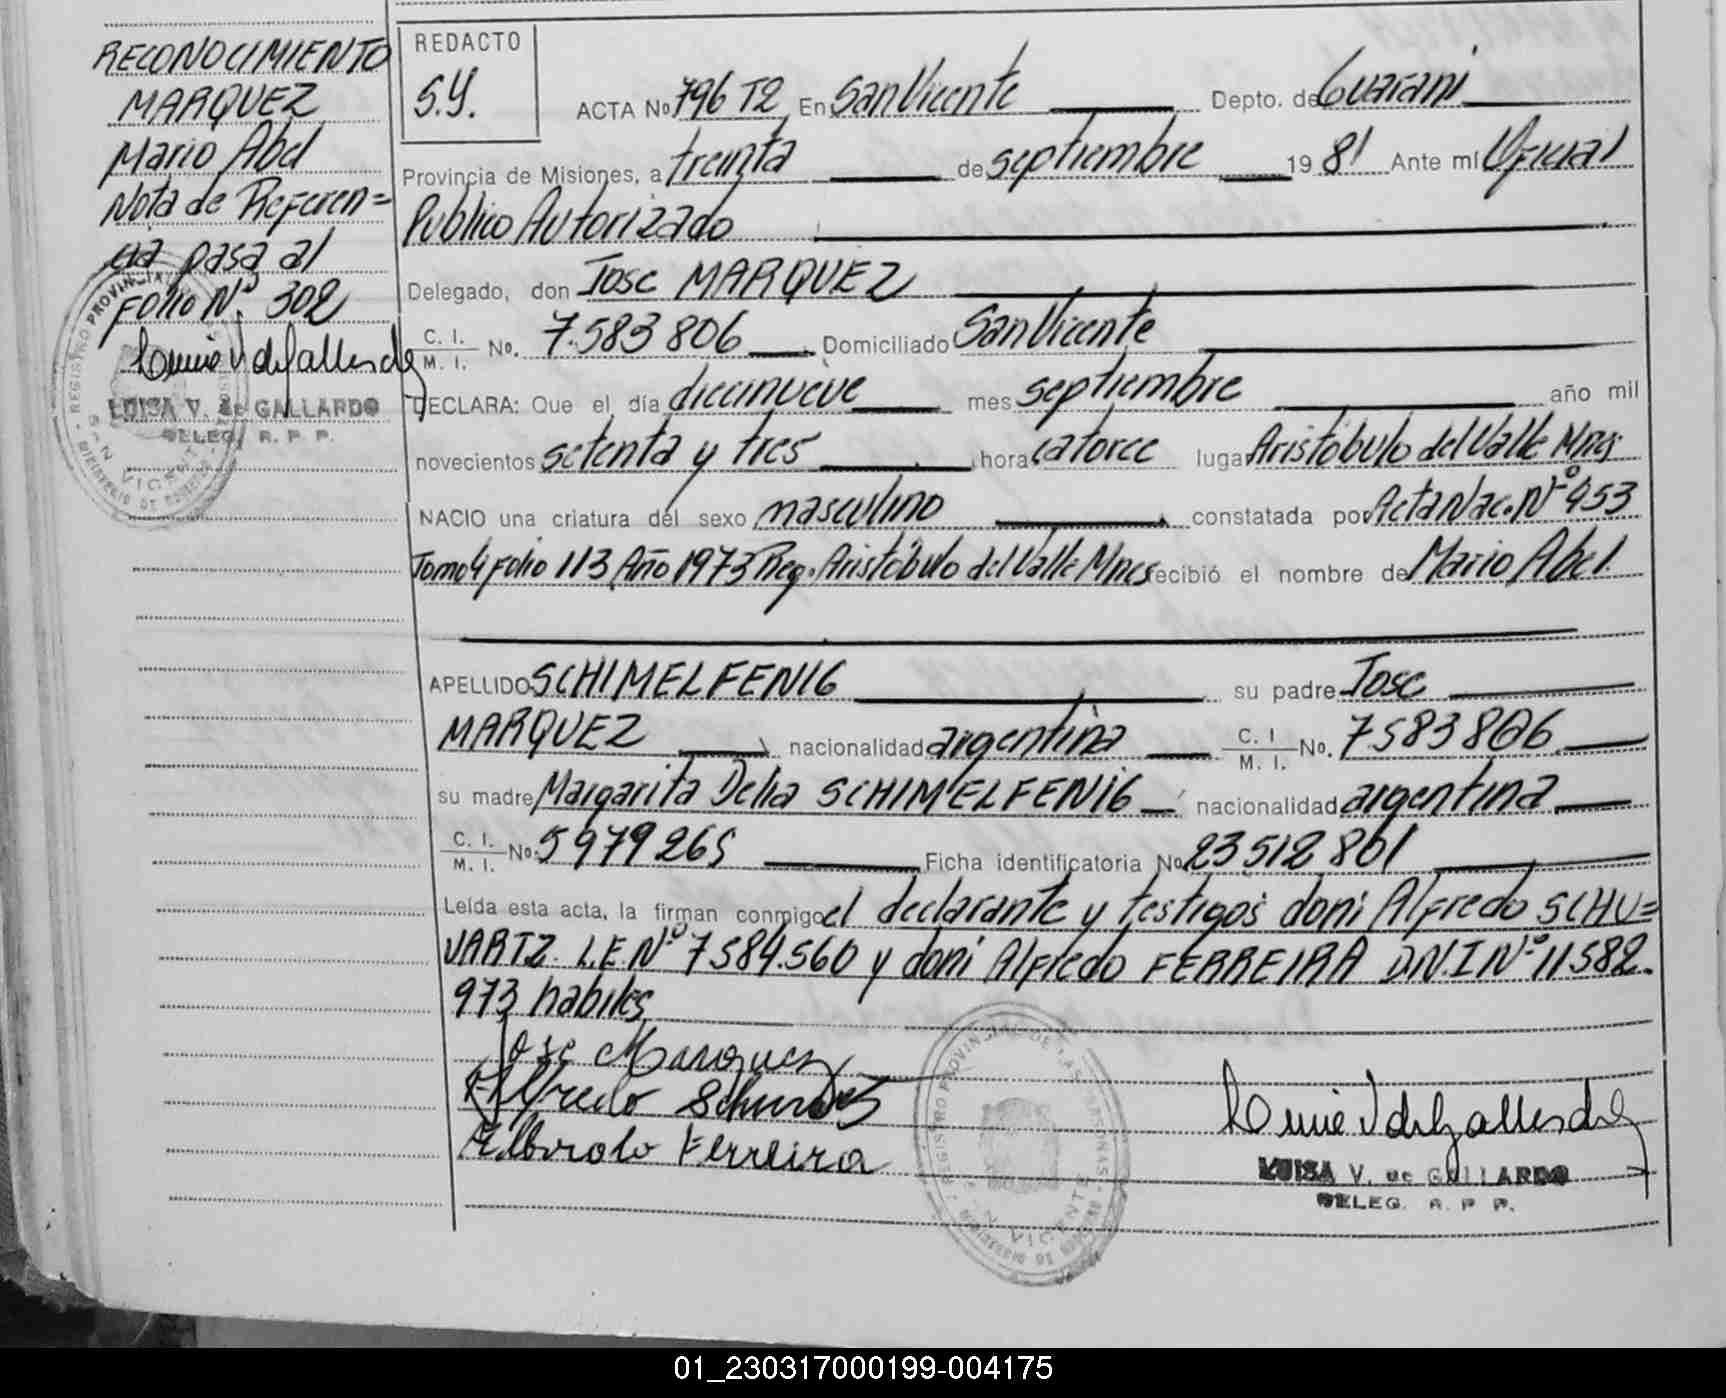 RECONOCIMIENTO
MARQUEZ
Mario Abel
Nota de Referen=
cia pasa al
Folio Nº 302
LUISA V. de GALLARDO
DELEG. R. P. P.
REDACTO
S.Y.
ACTA No 796 T2 En San Vicente Depto. de Guarani
Provincia de Misiones, a treinta de septiembre 19 81 Ante mí Oficial
Publico Autorizado
Delegado, don Jose MARQUEZ
C. I. / M. I. No. 7.583 806 Domiciliado San Vicente
DECLARA: Que el día diecinueve mes septiembre año mil
novecientos setenta y tres hora catorce lugar Aristóbulo del Valle Mnes
NACIO una criatura del sexo masculino constatada por Acta Nac. Nº 453
Tomo 4 Folio 113 Año 1973 Reg. Aristóbulo del Valle Mnes recibió el nombre de Mario Abel
APELLIDO SCHIMELFENIG su padre Jose
MARQUEZ nacionalidad argentina C. I / M. I. No. 7583806
su madre Margarita Delia SCHIMELFENIG nacionalidad argentina
C. I. / M. I. No. 5979265 Ficha identificatoria No. 23512801
Leída esta acta, la firman conmigo el declarante y testigos doni Alfredo SCHU=
VARTZ. L.E.Nº 7584.560 y doni Alfredo FERREIRA D.N.I Nº 11582.
973 habiles
Jose Marquez
Alfredo
Ferreira
REGISTRO PROVINCIAL DE LAS PERSONAS
SAN VICENTE
LUISA V. de GALLARDO
DELEG. R. P. P.
01_230317000199-004175